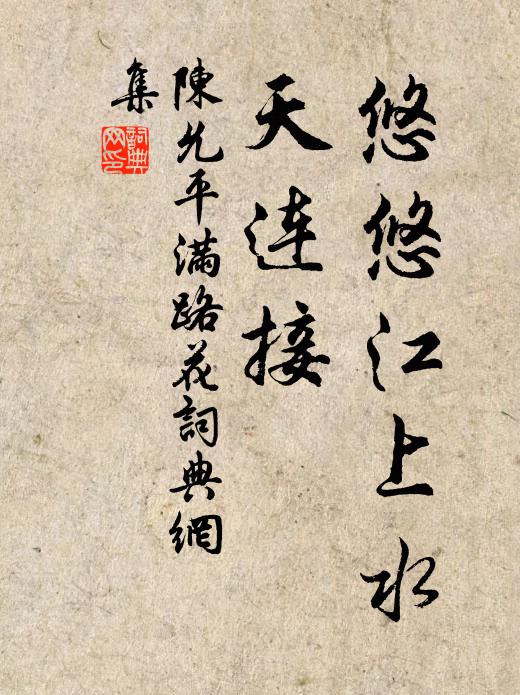 悠悠江上水
天连接
陳允平满路花詞典網
集
詞典
网印